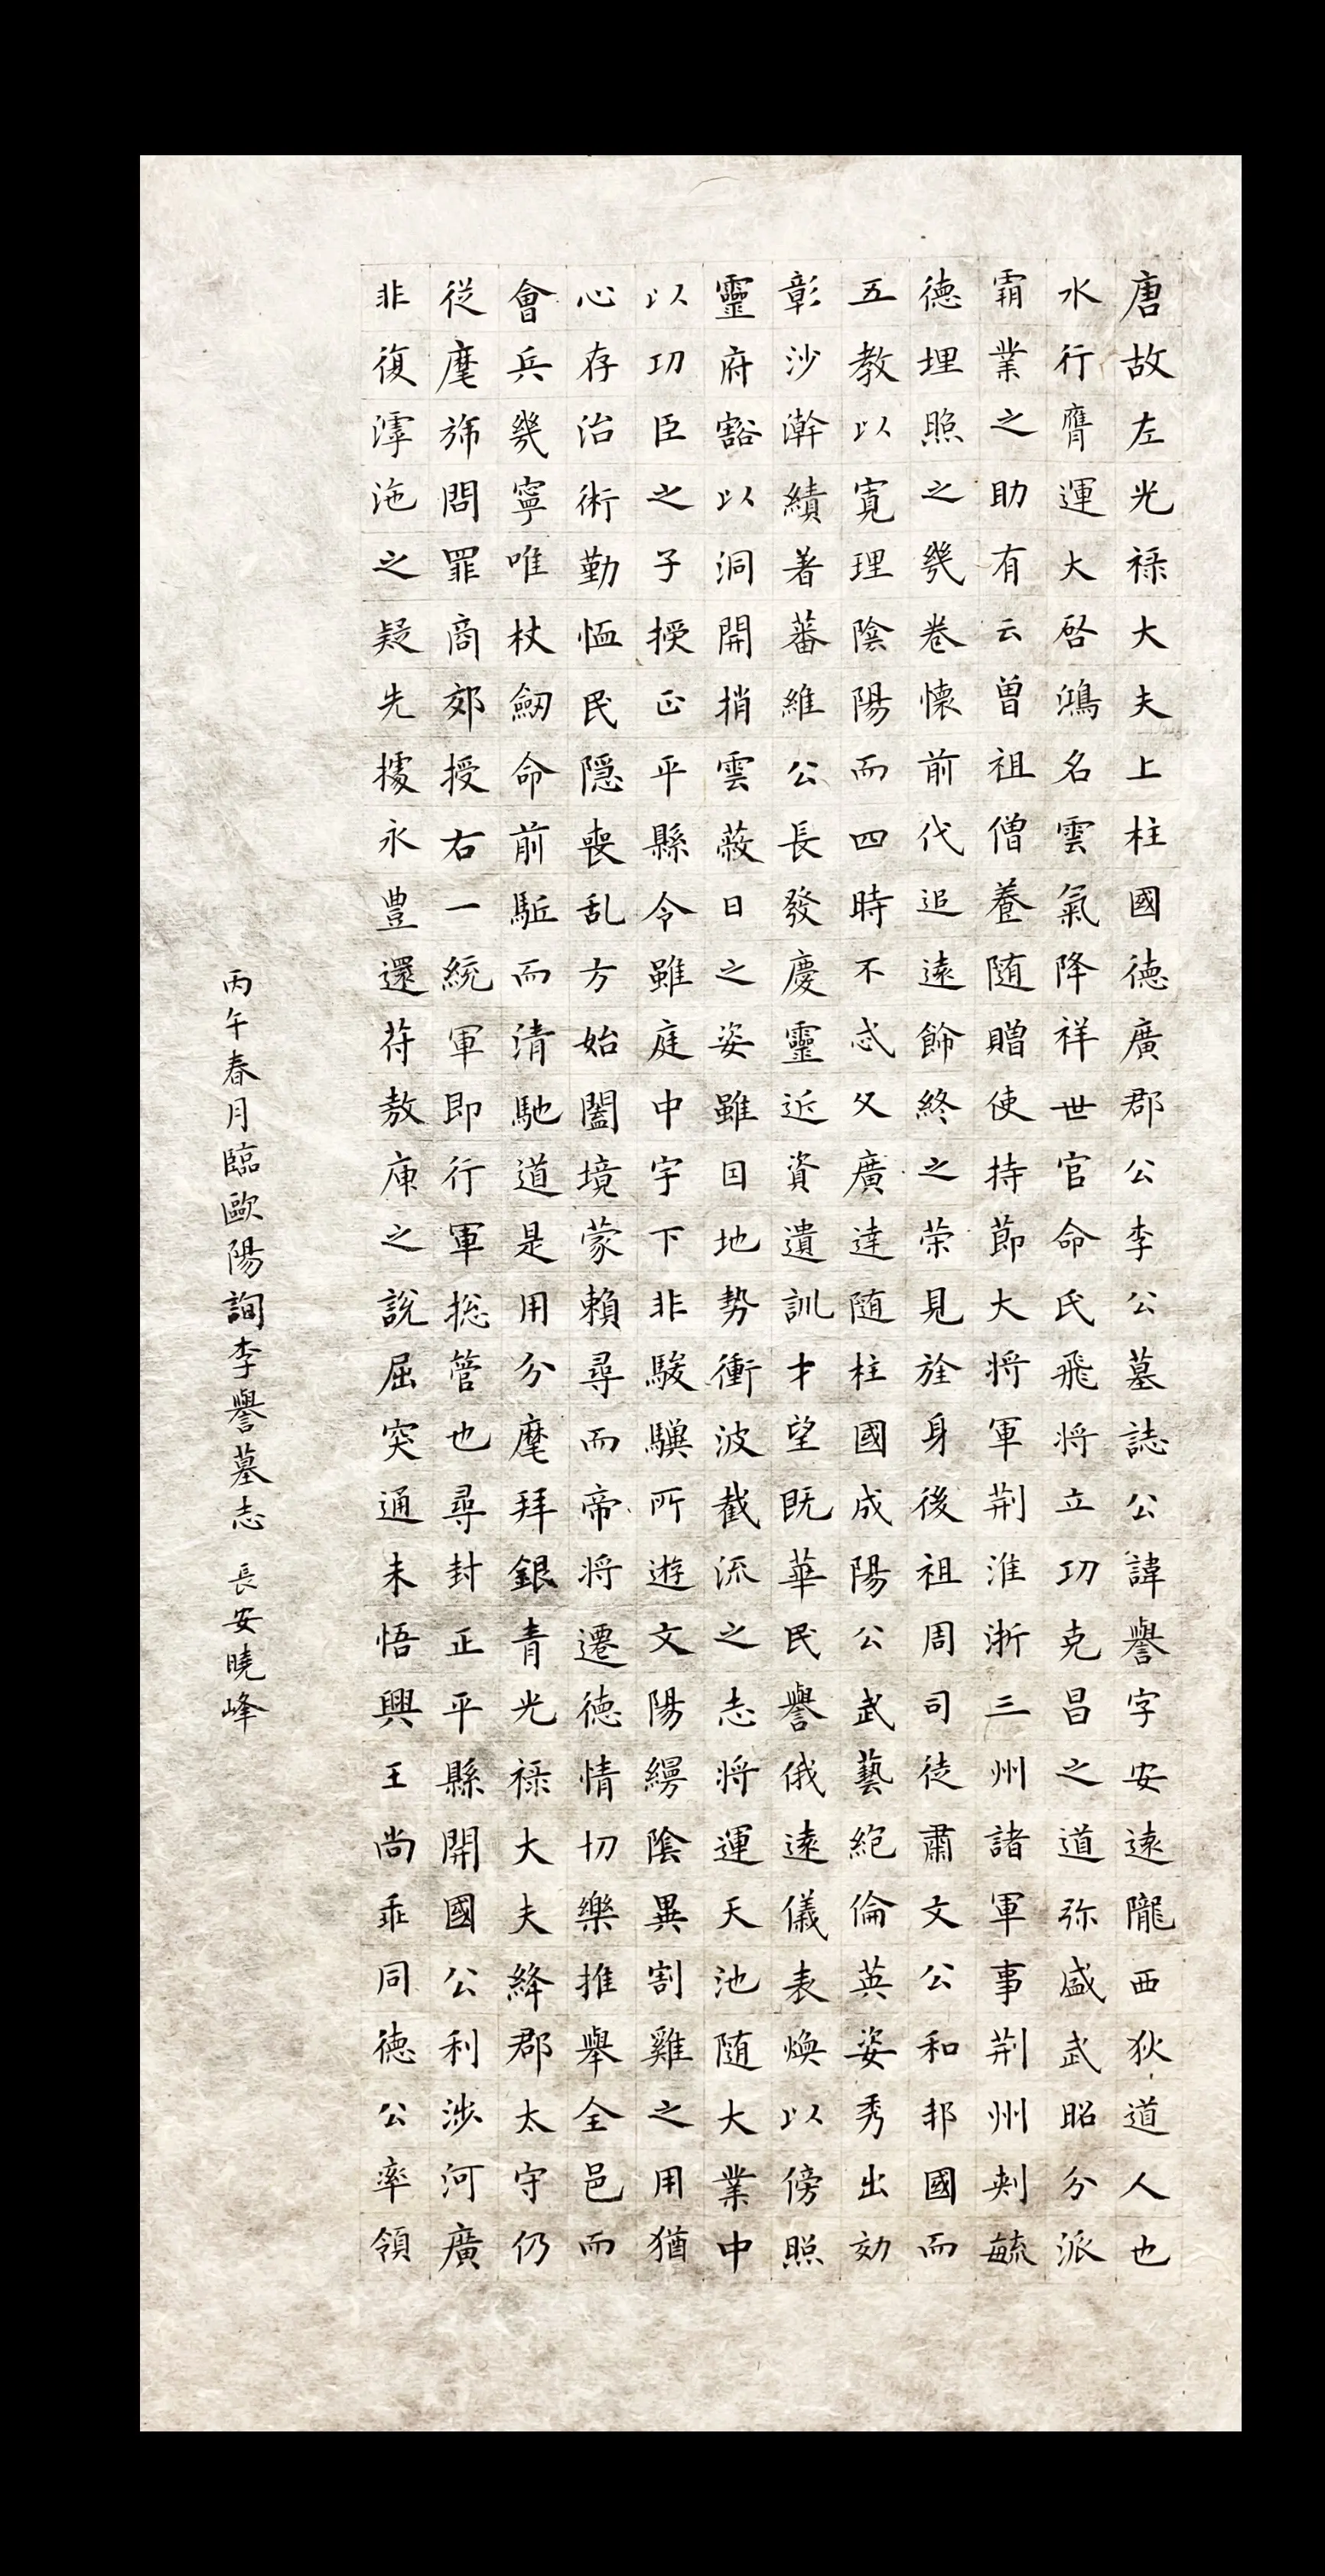 唐故左光禄大夫上柱國德廣郡公李公墓誌公諱譽字安遠隴西狄道人也
水行膺運大啓鴻名雲氣降祥世官命氏飛将立功克昌之道弥盛武昭分派
霸業之助有云曽祖僧養随贈使持節大将軍荆淮浙三州諸軍事荆州刺毓
德埋照之幾卷懷前代追遠飾終之荣見於身後祖周司徒肅文公和邦國而
五教以寬理陰陽而四時不忒父廣達随柱國成陽公武藝絶倫英姿秀出効
彰沙澣績著蕃維公長發慶靈近資遺訓才望既華民譽俄遠儀表煥以傍照
靈府豁以洞開捎雲蔽日之姿雖因地勢衝波截流之志将運天池随大業中
以功臣之子授正平縣令雖庭中宇下非駿驥所遊文陽縟陰異割雞之用猶
心存治術勤恤民隱喪乱方始闔境蒙賴尋而帝将遷德情切樂推舉全邑而
會兵幾寧唯杖劒命前駈而清馳道是用分麾拜銀青光禄大夫絳郡太守仍
從麾斾問罪商郊授右一統軍即行軍捴管也尋封正平縣開國公利涉河廣
非復滹沲之疑先據永豊還苻敖庾之說屈突通未悟興王尚乖同德公率領
丙午春月臨歐陽詢李譽墓志 長安曉峰